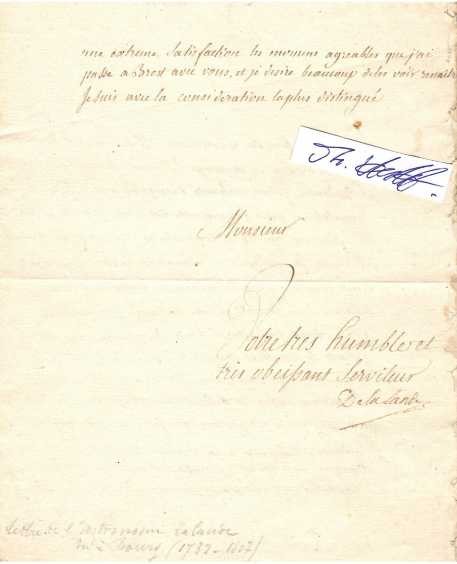 une extreme satisfaction les momens agreables que j'ai
passé a Brest avec vous, et je desire beaucoup de les voir renaitre
Je suis avec la consideration la plus distingué
Monsieur
Votre tres humble et
tres obeissant Serviteur
De la lande
Lettre de l'astronome Lalande
né à Bourg (1732-1807)